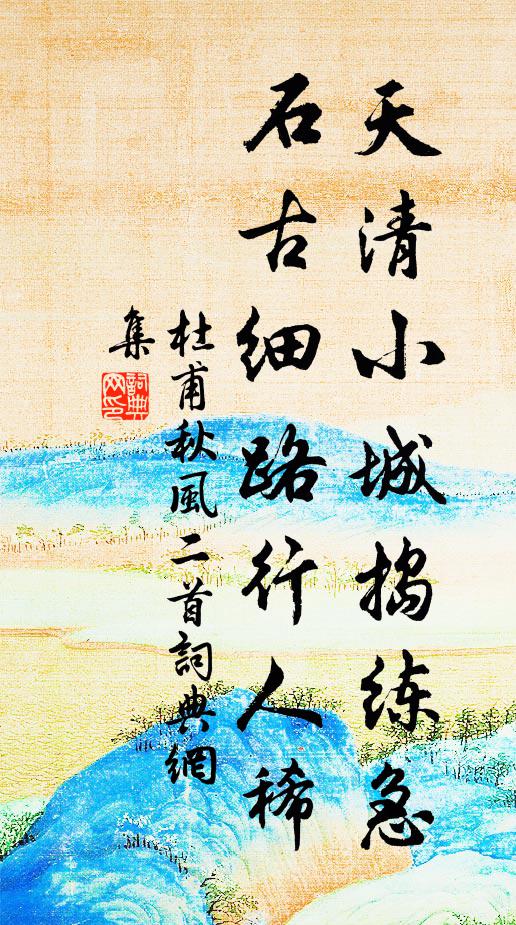 天清小城搗练急
石古细路行人稀
杜甫秋風二首詞典網
集
詞典网印